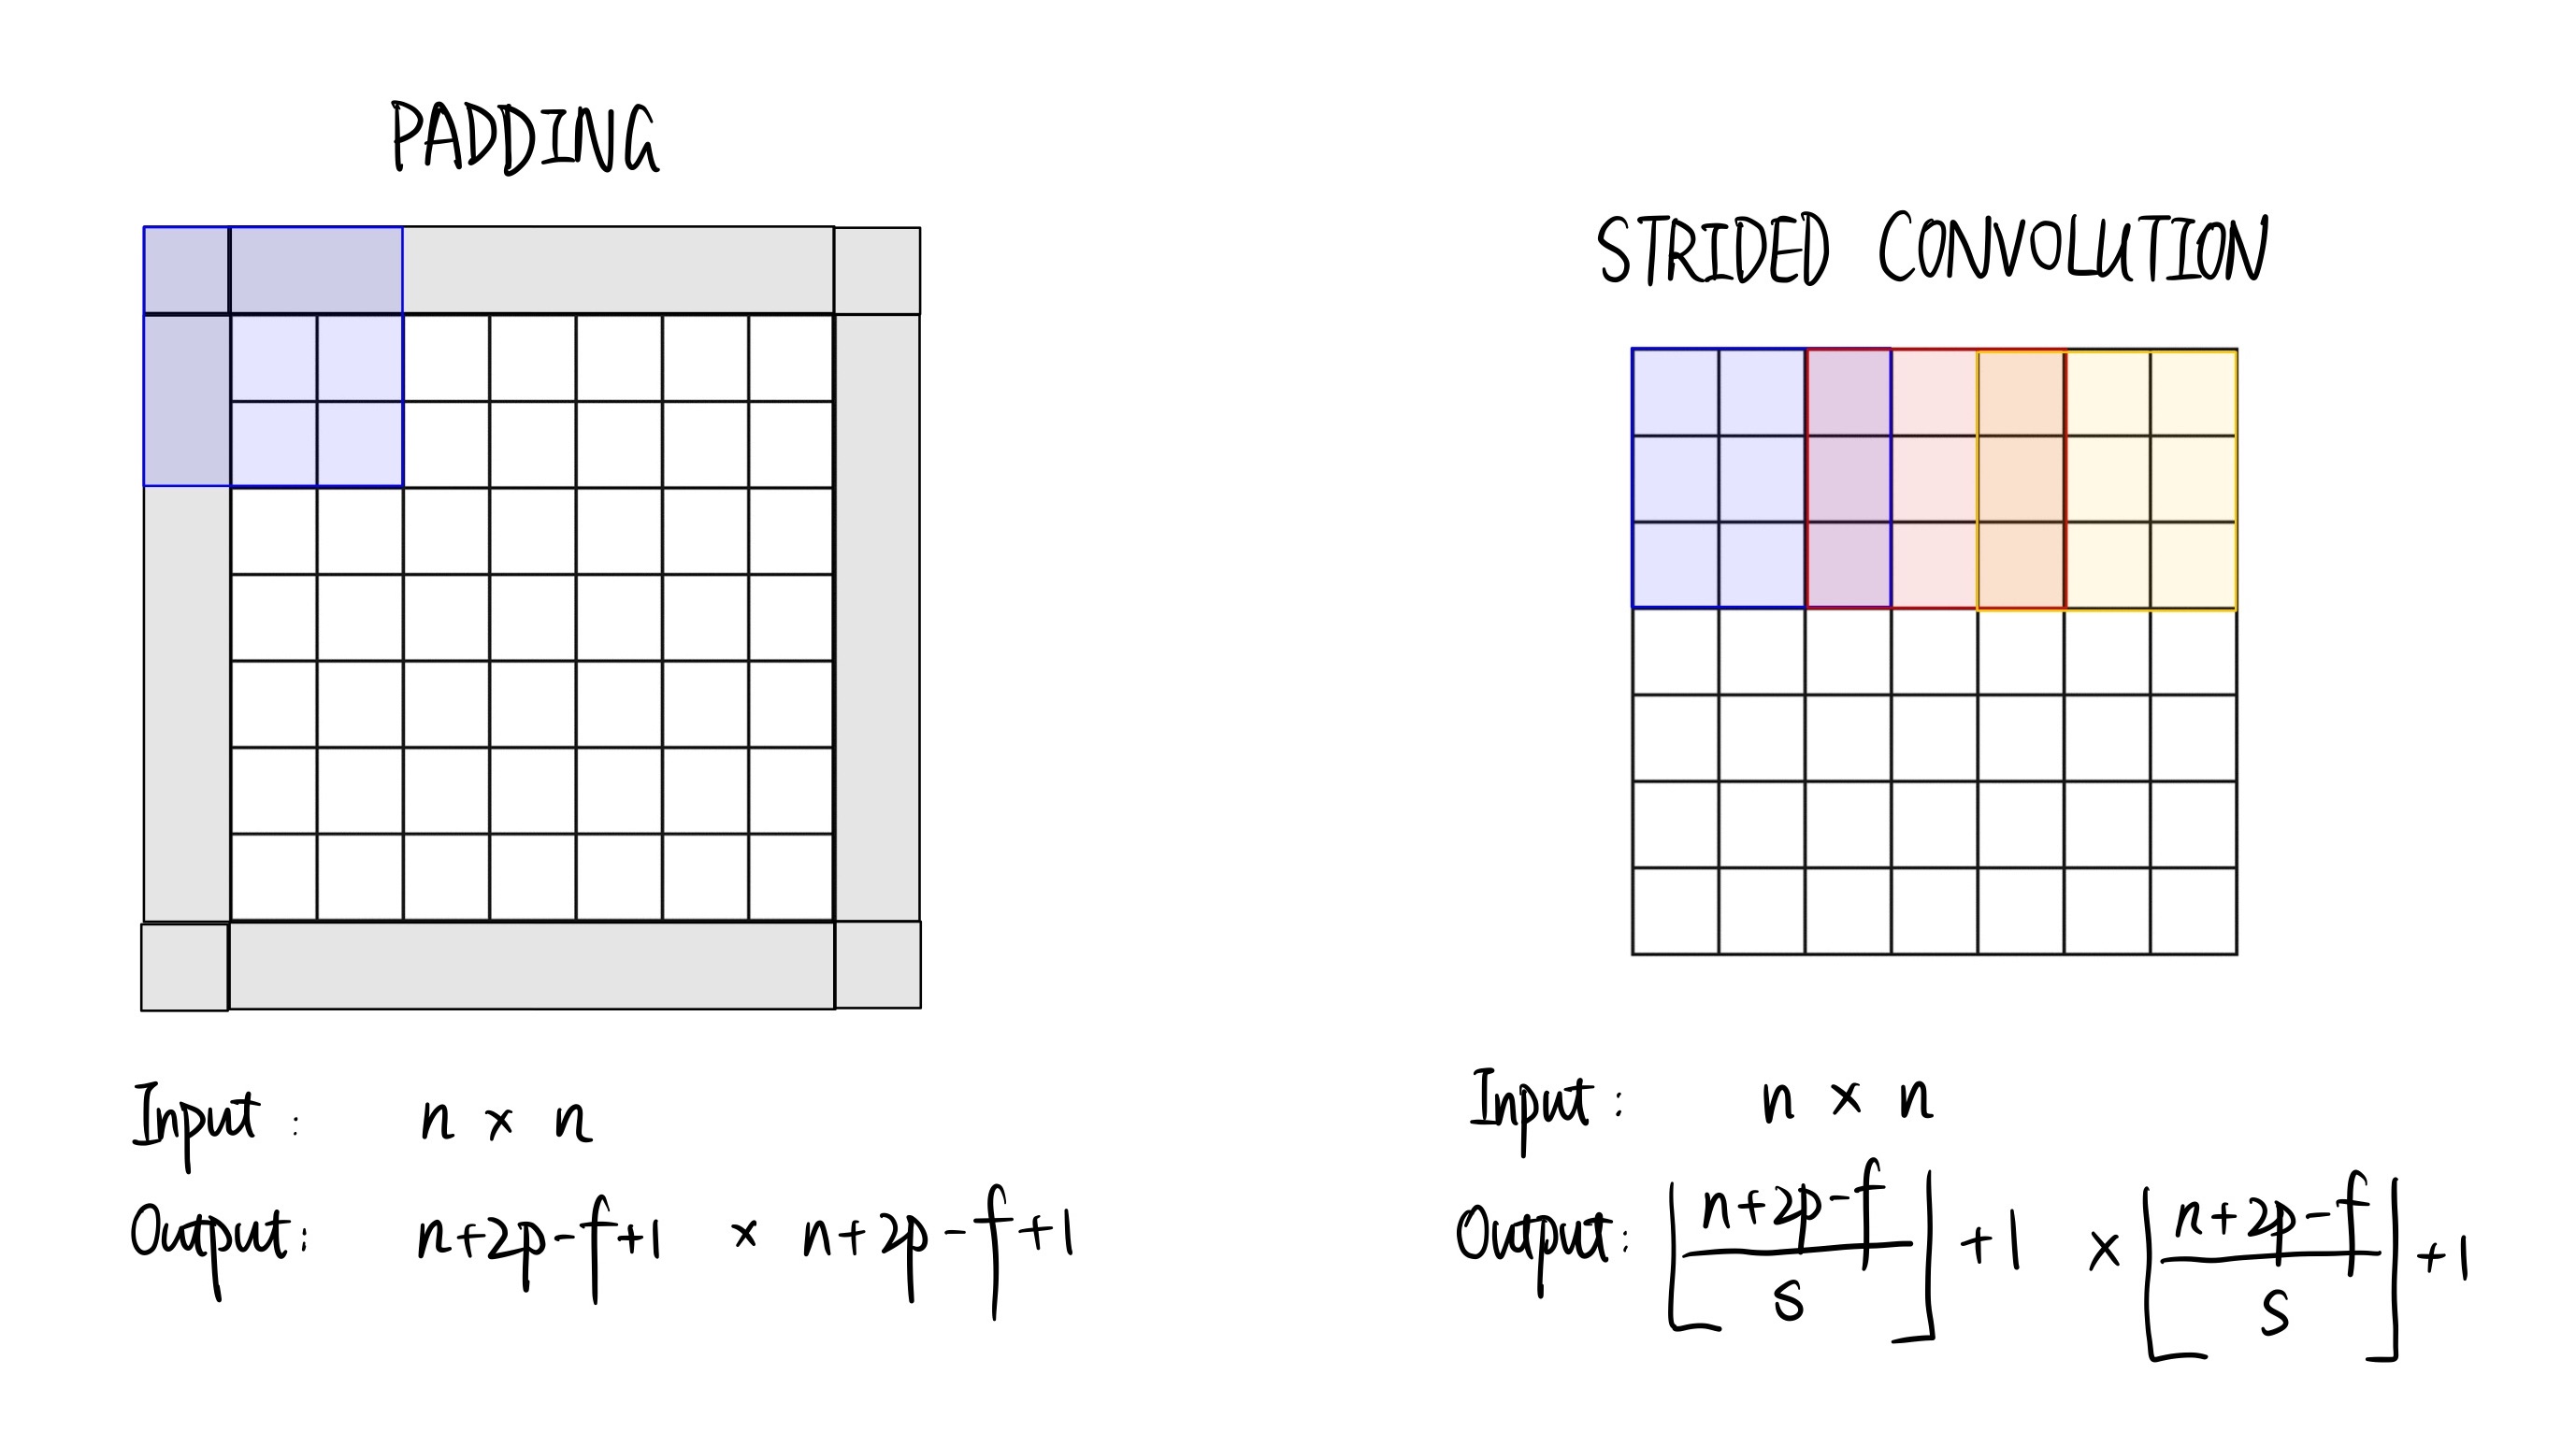 PADDING
Input : n × n
Output: n+2p-f+1 × n+2p-f+1
STRIDED CONVOLUTION
Input : n × n
Output: ⌊(n+2p-f)/s⌋ +1 × ⌊(n+2p-f)/s⌋ +1